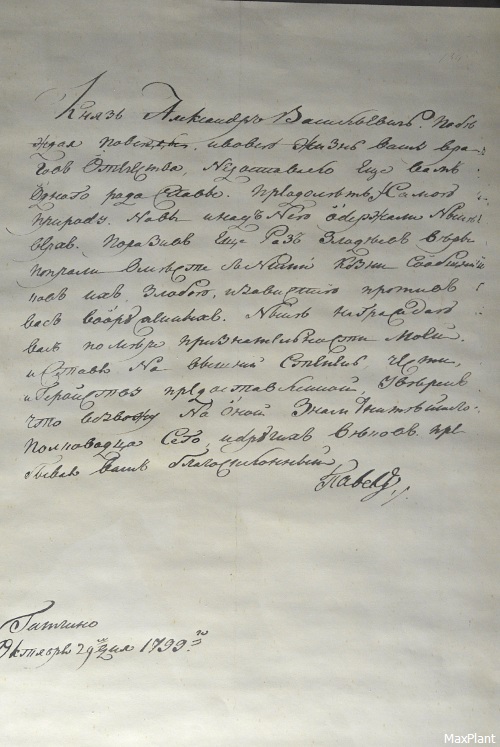 Князь Александръ Васильевичъ. Побѣ
ждая повсюду, и во всю жизнь вашу вра
говъ Отечества, Недоставало Еще вамъ
Одного рода Славы. Преодолѣть Самую
природу. Но вы и надъ Нею Одержали Нынѣ
верхъ. Поразивъ Еще Разъ Злодѣевъ Вѣры
попрали вмѣстѣ съ Ними Козни Сообщни
ковъ ихъ, Злобою, и завистію противъ
васъ вооруженныхъ. Нынѣ награждаю
васъ по мѣрѣ признательности Моей,
и Ставя На вышній Степень, Чести,
и Геройству предоставленной, Увѣренъ
что возвожу На Оной Знаменитѣйшаго
Полководца Сего, и другихъ вѣковъ. пре
бываю вамъ благосклонный
Павелъ
Гатчино
Октября 29 дня 1799го
MaxPlant